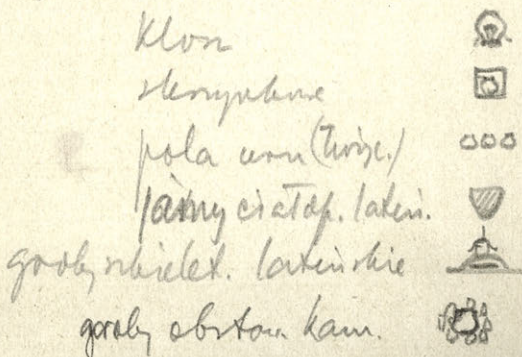 Klosz
skrzynkowe
pola urn (łużyc.)
jamy ciałop. lateń.
groby szkielet. lateńskie
groby obstaw. kam.